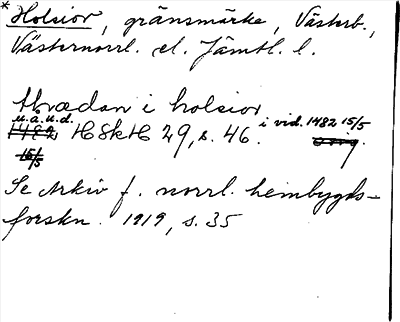 * Holsior, gränsmärke, Västerb.,
Västernorrl. el. Jämtl. l.
thrædan i holsior
u.a.u.d. i vid. 1482 15/5
1482 HSkH 29, s. 46. orig.
15/5
Se Arkiv f. norrl. hembygds-
forskn. 1919, s. 35